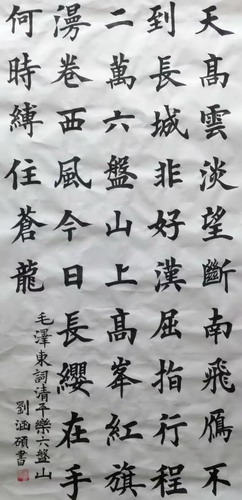 天髙雲淡望斷南飛鴈不
到長城非好漢屈指行程
二萬六盤山上髙峯紅旗
漫卷西風今日長纓在手
何時縛住蒼龍
毛澤東詞清平樂六盤山
劉涵碩書